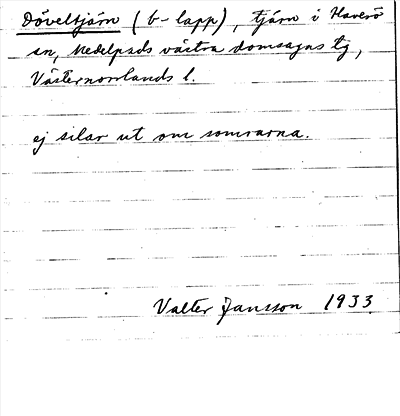 Döveltjärn (b-lapp), tjärn i Haverö
sn, Medelpads västra domsagas tg,
Västernorrlands l.
ej silar ut om somrarna.
Valter Jansson 1933